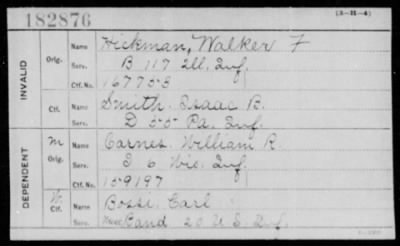 182876
(3-H-4)
INVALID
Orig.
Name Hickman, Walker F
Serv. B 117 Ill. Inf.
Ctf. No. 167758
Ctf.
Name Smith Isaac B.
Serv. D 55 Pa. Inf.
DEPENDENT
M
Orig.
Name Carnes William R.
Serv. I 6 Wis. Inf.
Ctf. No. 159197
Ctf.
Name Bosse Carl
Serv. Band 20 U.S. Inf.